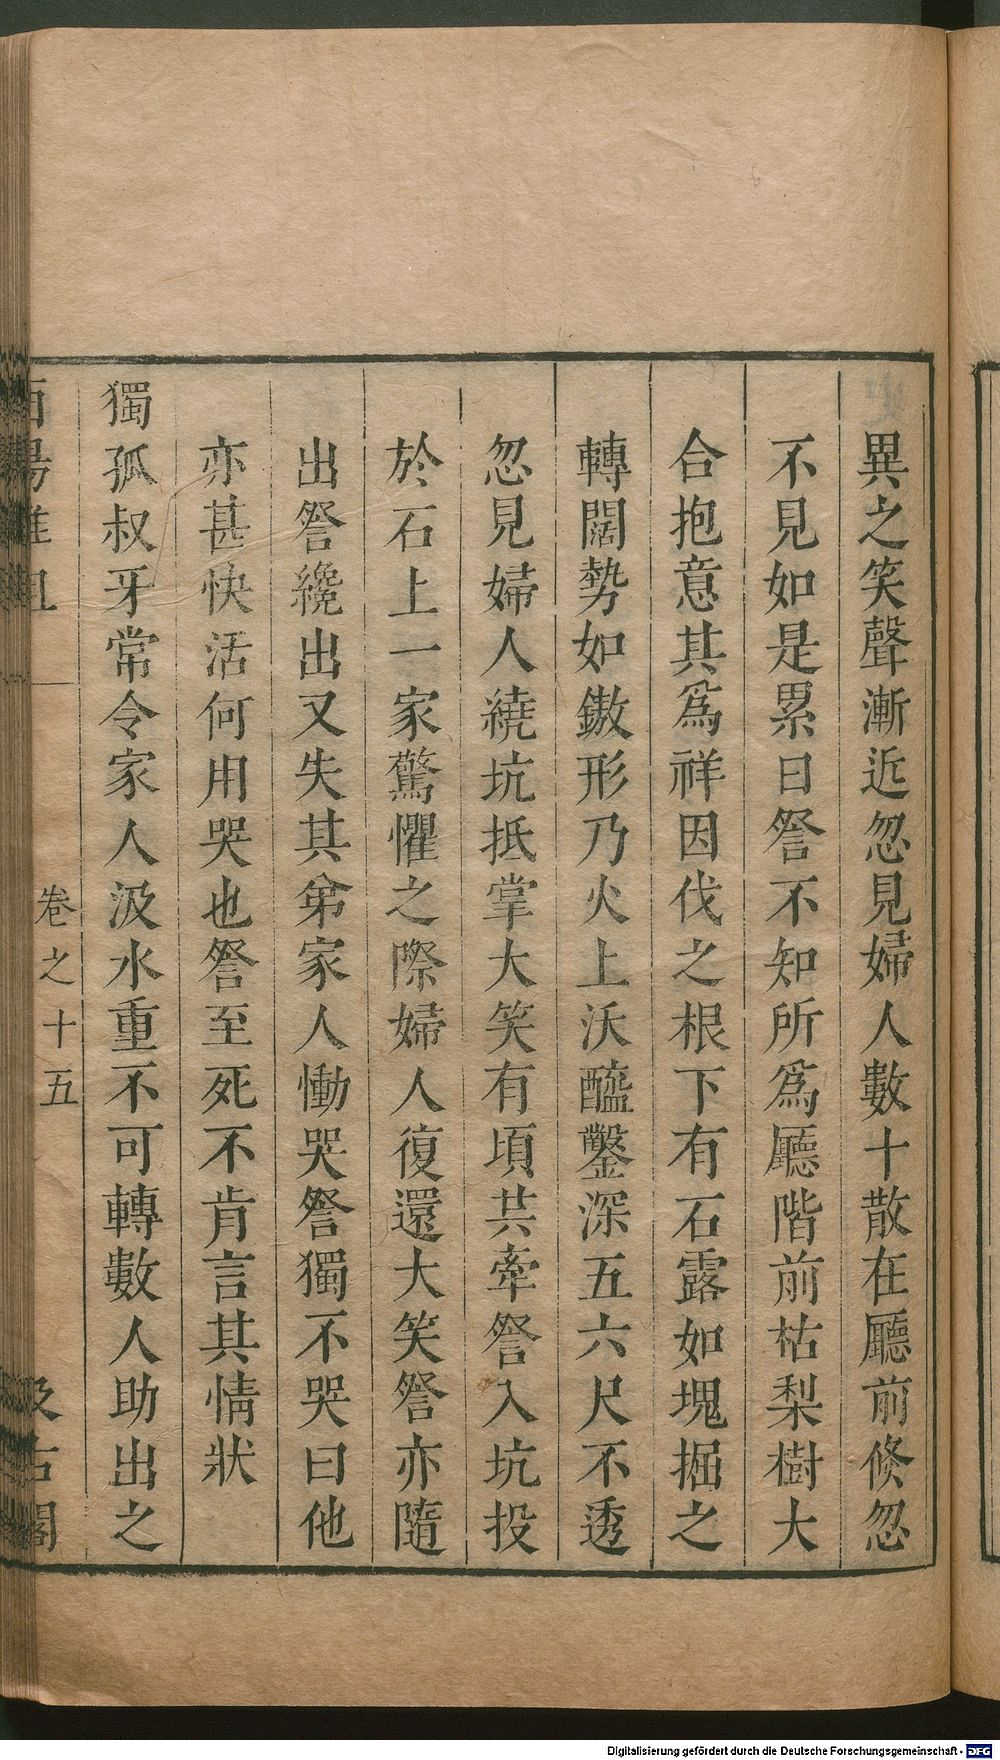 異之笑聲漸近忽見婦人數十散在廳前倐忽
不見如是累日詧不知所爲廳階前枯梨樹大
合抱意其爲祥因伐之根下有石露如塊掘之
轉闊勢如鏊形乃火上沃醯鑿深五六尺不透
忽見婦人繞坑抵掌大笑有頃共牽詧入坑投
於石上一家驚懼之際婦人復還大笑詧亦隨
出詧纔出又失其弟家人慟哭詧獨不哭曰他
亦甚快活何用哭也詧至死不肯言其情狀
獨孤叔牙常令家人汲水重不可轉數人助出之
酉陽雜俎 卷之十五 汲古閣
Digitalisierung gefördert durch die Deutsche Forschungsgemeinschaft - DFG